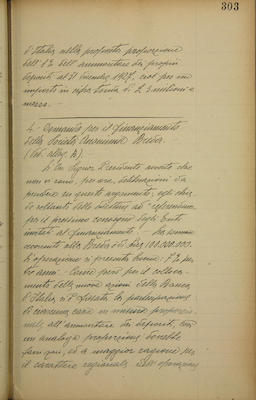 303
d'Italia nella proposta proporzione
dell' 1% dell'ammontare dei propri
depositi al 31 Dicembre 1927, cioè per un
importo in cifra tonda di 2,3 milioni e
mezzo.
4° Domanda per il finanziamento
della Società Anonima Breda.
(Ved. alleg. A).
Il Signor Presidente avverte che
non vi sono, per ora, deliberazioni da
prendere su questo argomento; egli chie-
de soltanto della direttiva ad referendum
per il prossimo convegno degli Enti
invitati al finanziamento. La somma
occorrente alla Breda è di Lire 100.000.000.
L'operazione si presenta buona: 7% per
anni. Come però per il colloca-
mento delle nuove azioni della Banca
d'Italia si è fissata la partecipazione
di ciascuna cassa in misura proporzio-
nale all'ammontare dei depositi, così
un'analoga proporzione dovrebbe
farsi qui, ed a maggior ragione per
il carattere regionale dell'operazione